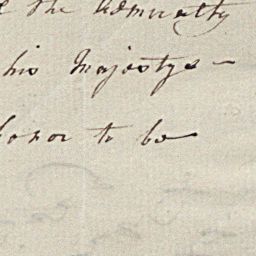 the Admiralty
his Majestys -
honor to be